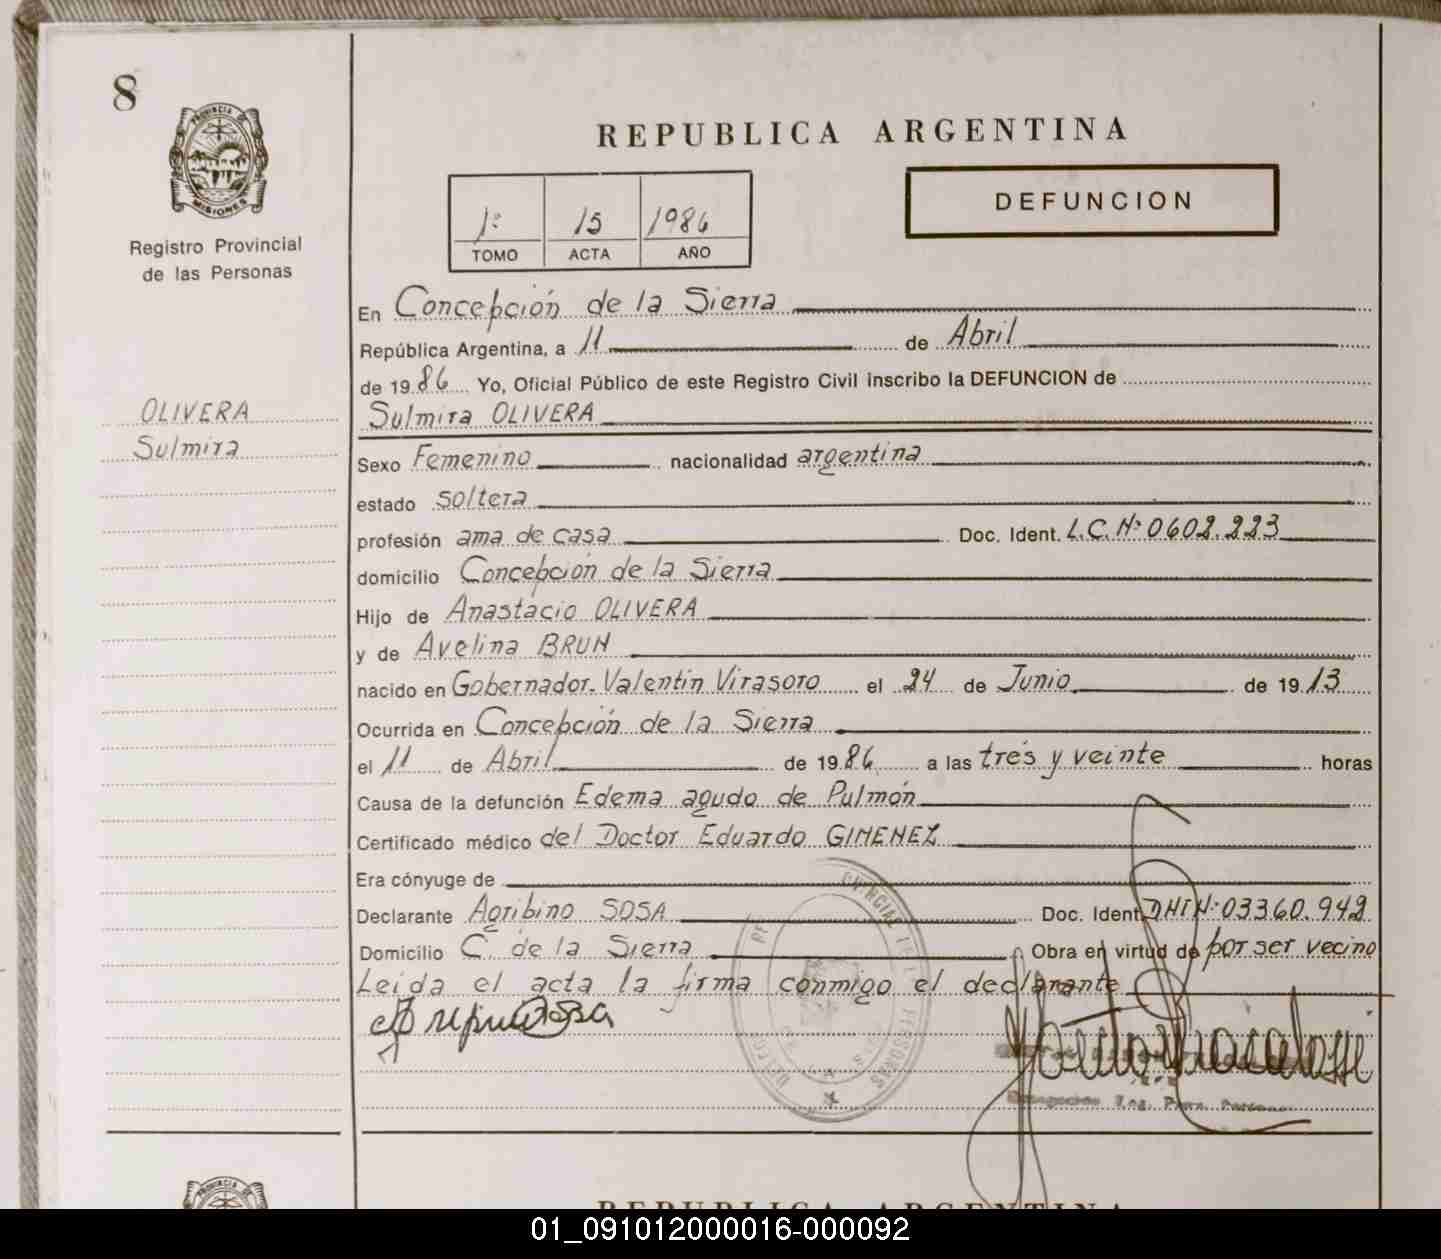 8
PROVINCIA DE
MISIONES
Registro Provincial
de las Personas
OLIVERA
Sulmira
REPUBLICA ARGENTINA
1º 15 1986
TOMO ACTA AÑO
DEFUNCION
En Concepción de la Sierra
República Argentina, a 11 de Abril
de 1986 Yo, Oficial Público de este Registro Civil inscribo la DEFUNCION de
Sulmira OLIVERA
Sexo Femenino nacionalidad argentina
estado soltera
profesión ama de casa Doc. Ident. L.C.Nº 0602.223
domicilio Concepción de la Sierra
Hijo de Anastacio OLIVERA
y de Avelina BRUN
nacido en Gobernador Valentín Virasoro el 24 de Junio de 1913
Ocurrida en Concepción de la Sierra
el 11 de Abril de 1986 a las tres y veinte horas
Causa de la defunción Edema agudo de Pulmón
Certificado médico del Doctor Eduardo GIMENEZ
Era cónyuge de
Declarante Agribino SOSA Doc. Ident. DNI Nº 03360.942
Domicilio C. de la Sierra Obra en virtud de por ser vecino
Leida el acta la firma conmigo el declarante
REPUBLICA ARGENTINA
01_091012000016-000092